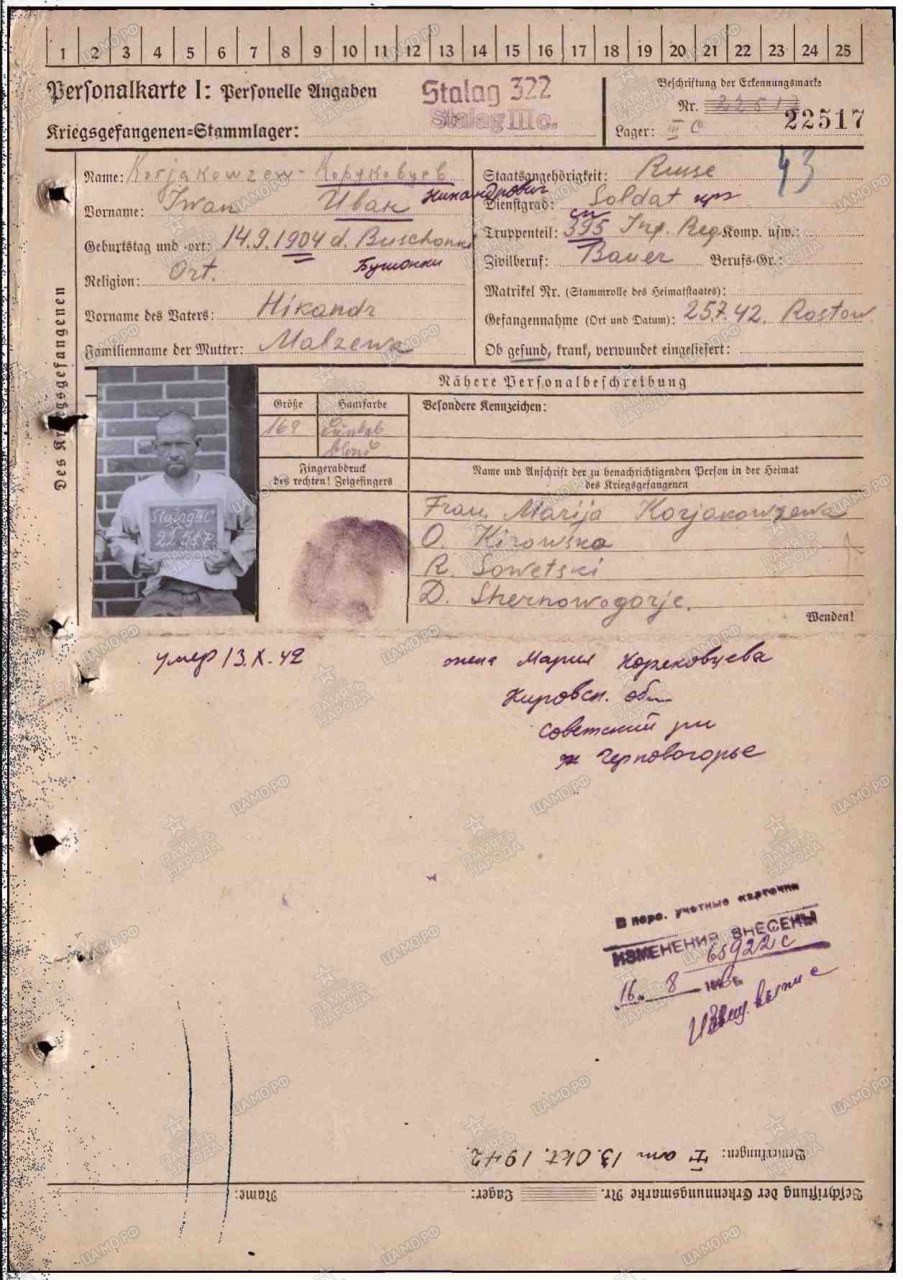 1 2 3 4 5 6 7 8 9 10 11 12 13 14 15 16 17 18 19 20 21 22 23 24 25
Personalkarte I: Personelle Angaben
Stalag 322
Stalag IIIc.
Beschriftung der Erkennungsmarke
Nr. 22517
Kriegsgefangenen=Stammlager:
Lager: III C
Des Kriegsgefangenen
Name: Korjakowzew - Коряковцев
Vorname: Iwan Иван Никандрович
Geburtstag und -ort: 14.9.1904 d. Buschonki
Бушонки
Religion: Ort.
Vorname des Vaters: Nikandr
Familienname der Mutter: Malzewa
Staatsangehörigkeit: Russe
43
Dienstgrad: Soldat кр
Truppenteil: 395 Inf. Reg. Komp. usw.:
сп
Zivilberuf: Bauer Berufs-Gr.:
Matrikel Nr. (Stammrolle des Heimatstaates):
Gefangennahme (Ort und Datum): 25.7.42. Rostow
Ob gesund, krank, verwundet eingeliefert:
Nähere Personalbeschreibung
Größe Haarfarbe
169 blond
Besondere Kennzeichen:
Fingerabdruck
des rechten! Zeigefingers
Stalag IIIC
22517
Name und Anschrift der zu benachrichtigenden Person in der Heimat
des Kriegsgefangenen
Frau Marija Korjakowzewa
O. Kirowska
R. Sowetski
D. Shernowogorje.
Wenden!
умер 13.X.42
жена Мария Коряковцева
Кировск. обл
Советский рн
д Черновогорье
В перс. учетные карточки
ИЗМЕНЕНИЯ ВНЕСЕНЫ
65922с
16. 8
Bemerkungen: † am 13. Okt. 1942
Beschriftung der Erkennungsmarke Nr. Lager: Name:
ПАМЯТЬ НАРОДА
ЦАМО.РФ